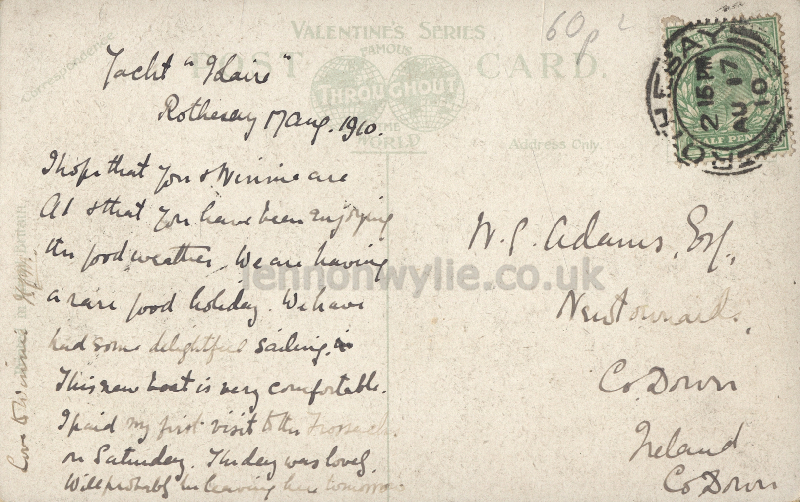 60p
VALENTINE'S SERIES
POST CARD.
FAMOUS
THROUGHOUT
THE
WORLD
Correspondence
Address Only.
ROTHESAY
2 15 PM
AU 17
10
HALF PENNY
Yacht "
Rothesay 17 Aug. 1910.
I hope that you & Winnie are
A1 & that you have been enjoying
the good weather. We are having
a rare good holiday. We have
had some delightful sailing.
This new boat is very comfortable.
I paid my first visit to the Trossachs
on Saturday. The day was lovely.
Will probably be leaving here tomorrow.
Love to Winnie
Adams, Esq.,
Newtownards,
Co. Down
Ireland
Co Down
lennonwylie.co.uk